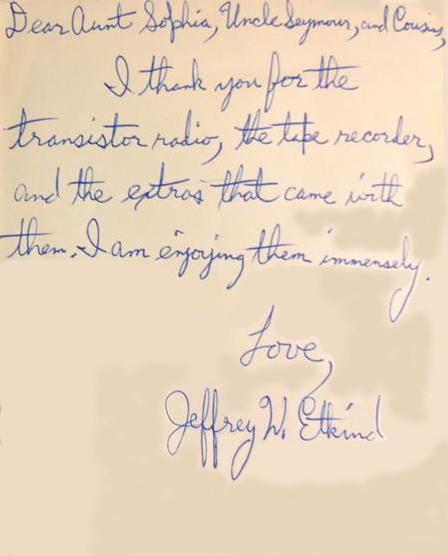 Dear Aunt Sophia, Uncle Seymour, and Cousins,
I thank you for the
transistor radio, the tape recorder,
and the extras that came with
them. I am enjoying them immensely.
Love,
Jeffrey W. Etkind